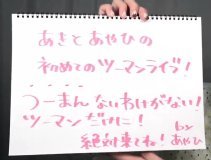 あきとあやひの
初めてのツーマンライブ!
つーまんないわけがない!
ツーマンだけに!
by
絶対来てね! あやひ